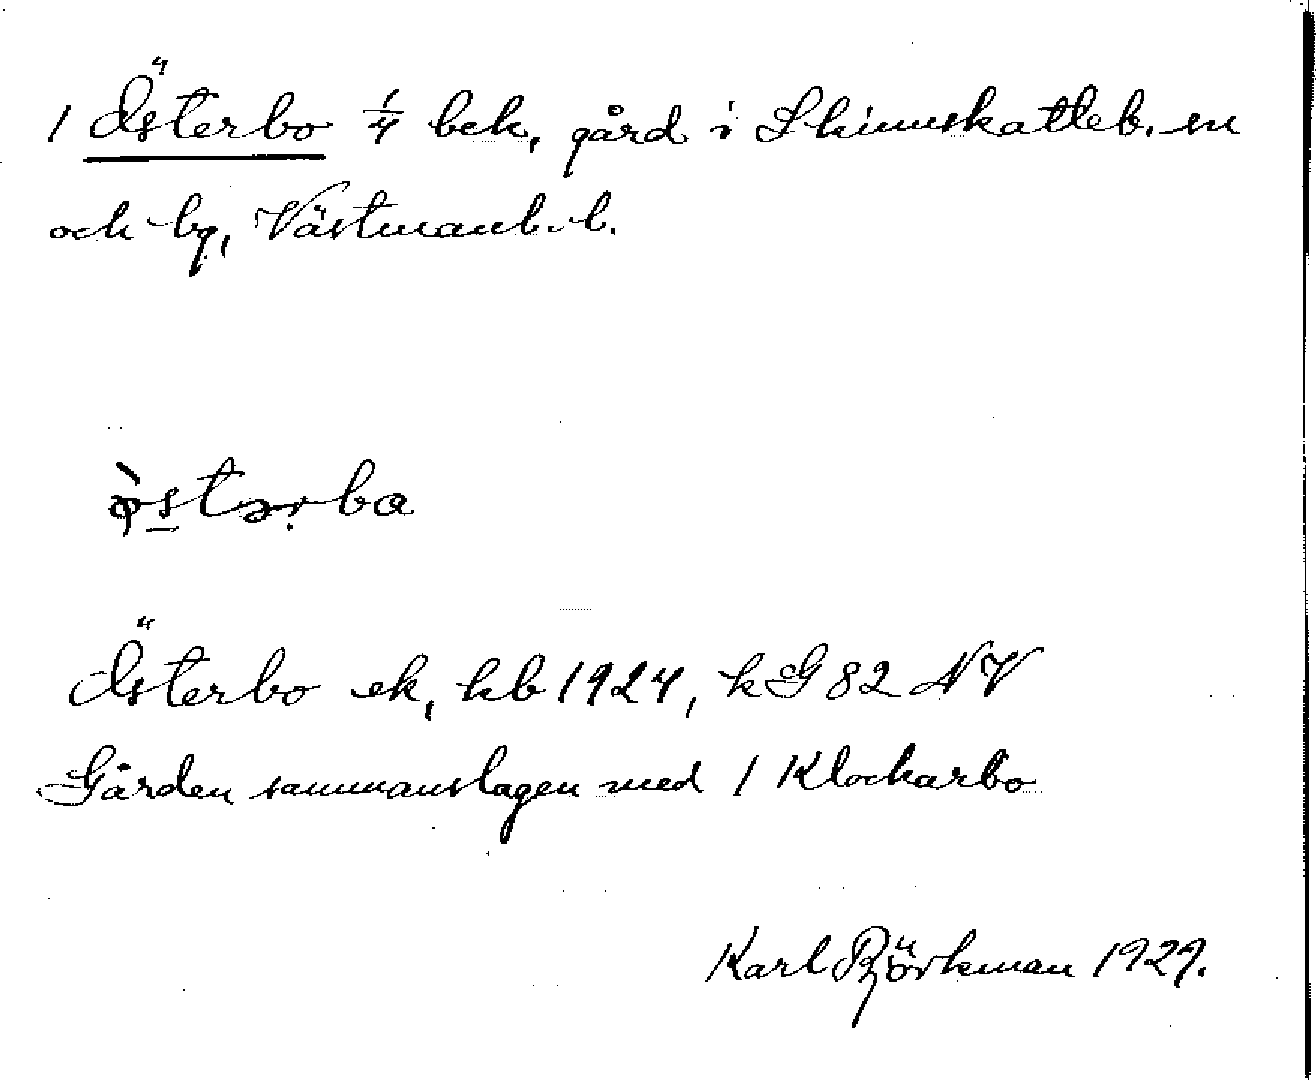 1 Österbo 1/4 bek, gård i Skinnskatteb. sn
och -bg, Västmanl. l.
östərba
Österbo ek, kb 1924, kG 82 NV
Gården sammanslagen med 1 Klockarbo
Karl Björkman 1929.